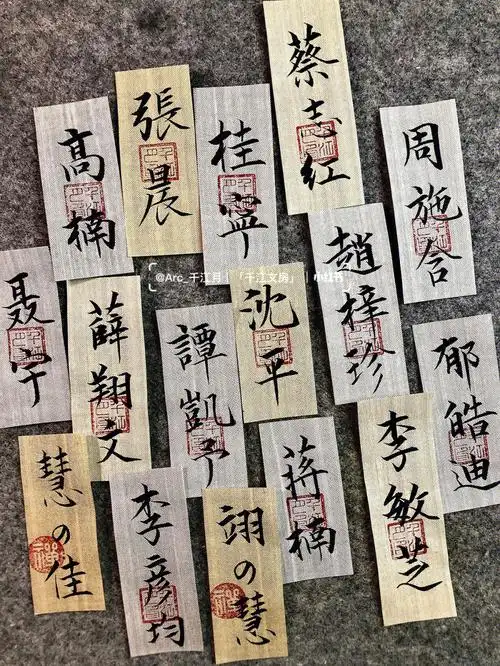 蔡志红
張晨
高楠
桂寧
周施含
趙梓珍
聂宁
薛翔文
沈平
譚凱予
郁皓迪
李敏芝
蒋楠
慧の佳
李彦均
翊の慧
@Arc_千江月｜「千江文房」｜小红书